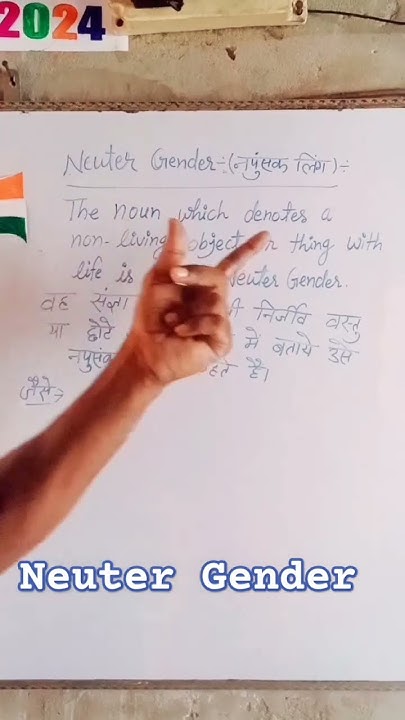 2024
Neuter Gender÷(नपुंसक लिंग)÷
The noun which denotes a
non-living object or thing with
life is Neuter Gender.
वह संज्ञा निर्जीव वस्तु
या छोटे में बताये उसे
है।
जैसे→
Neuter Gender